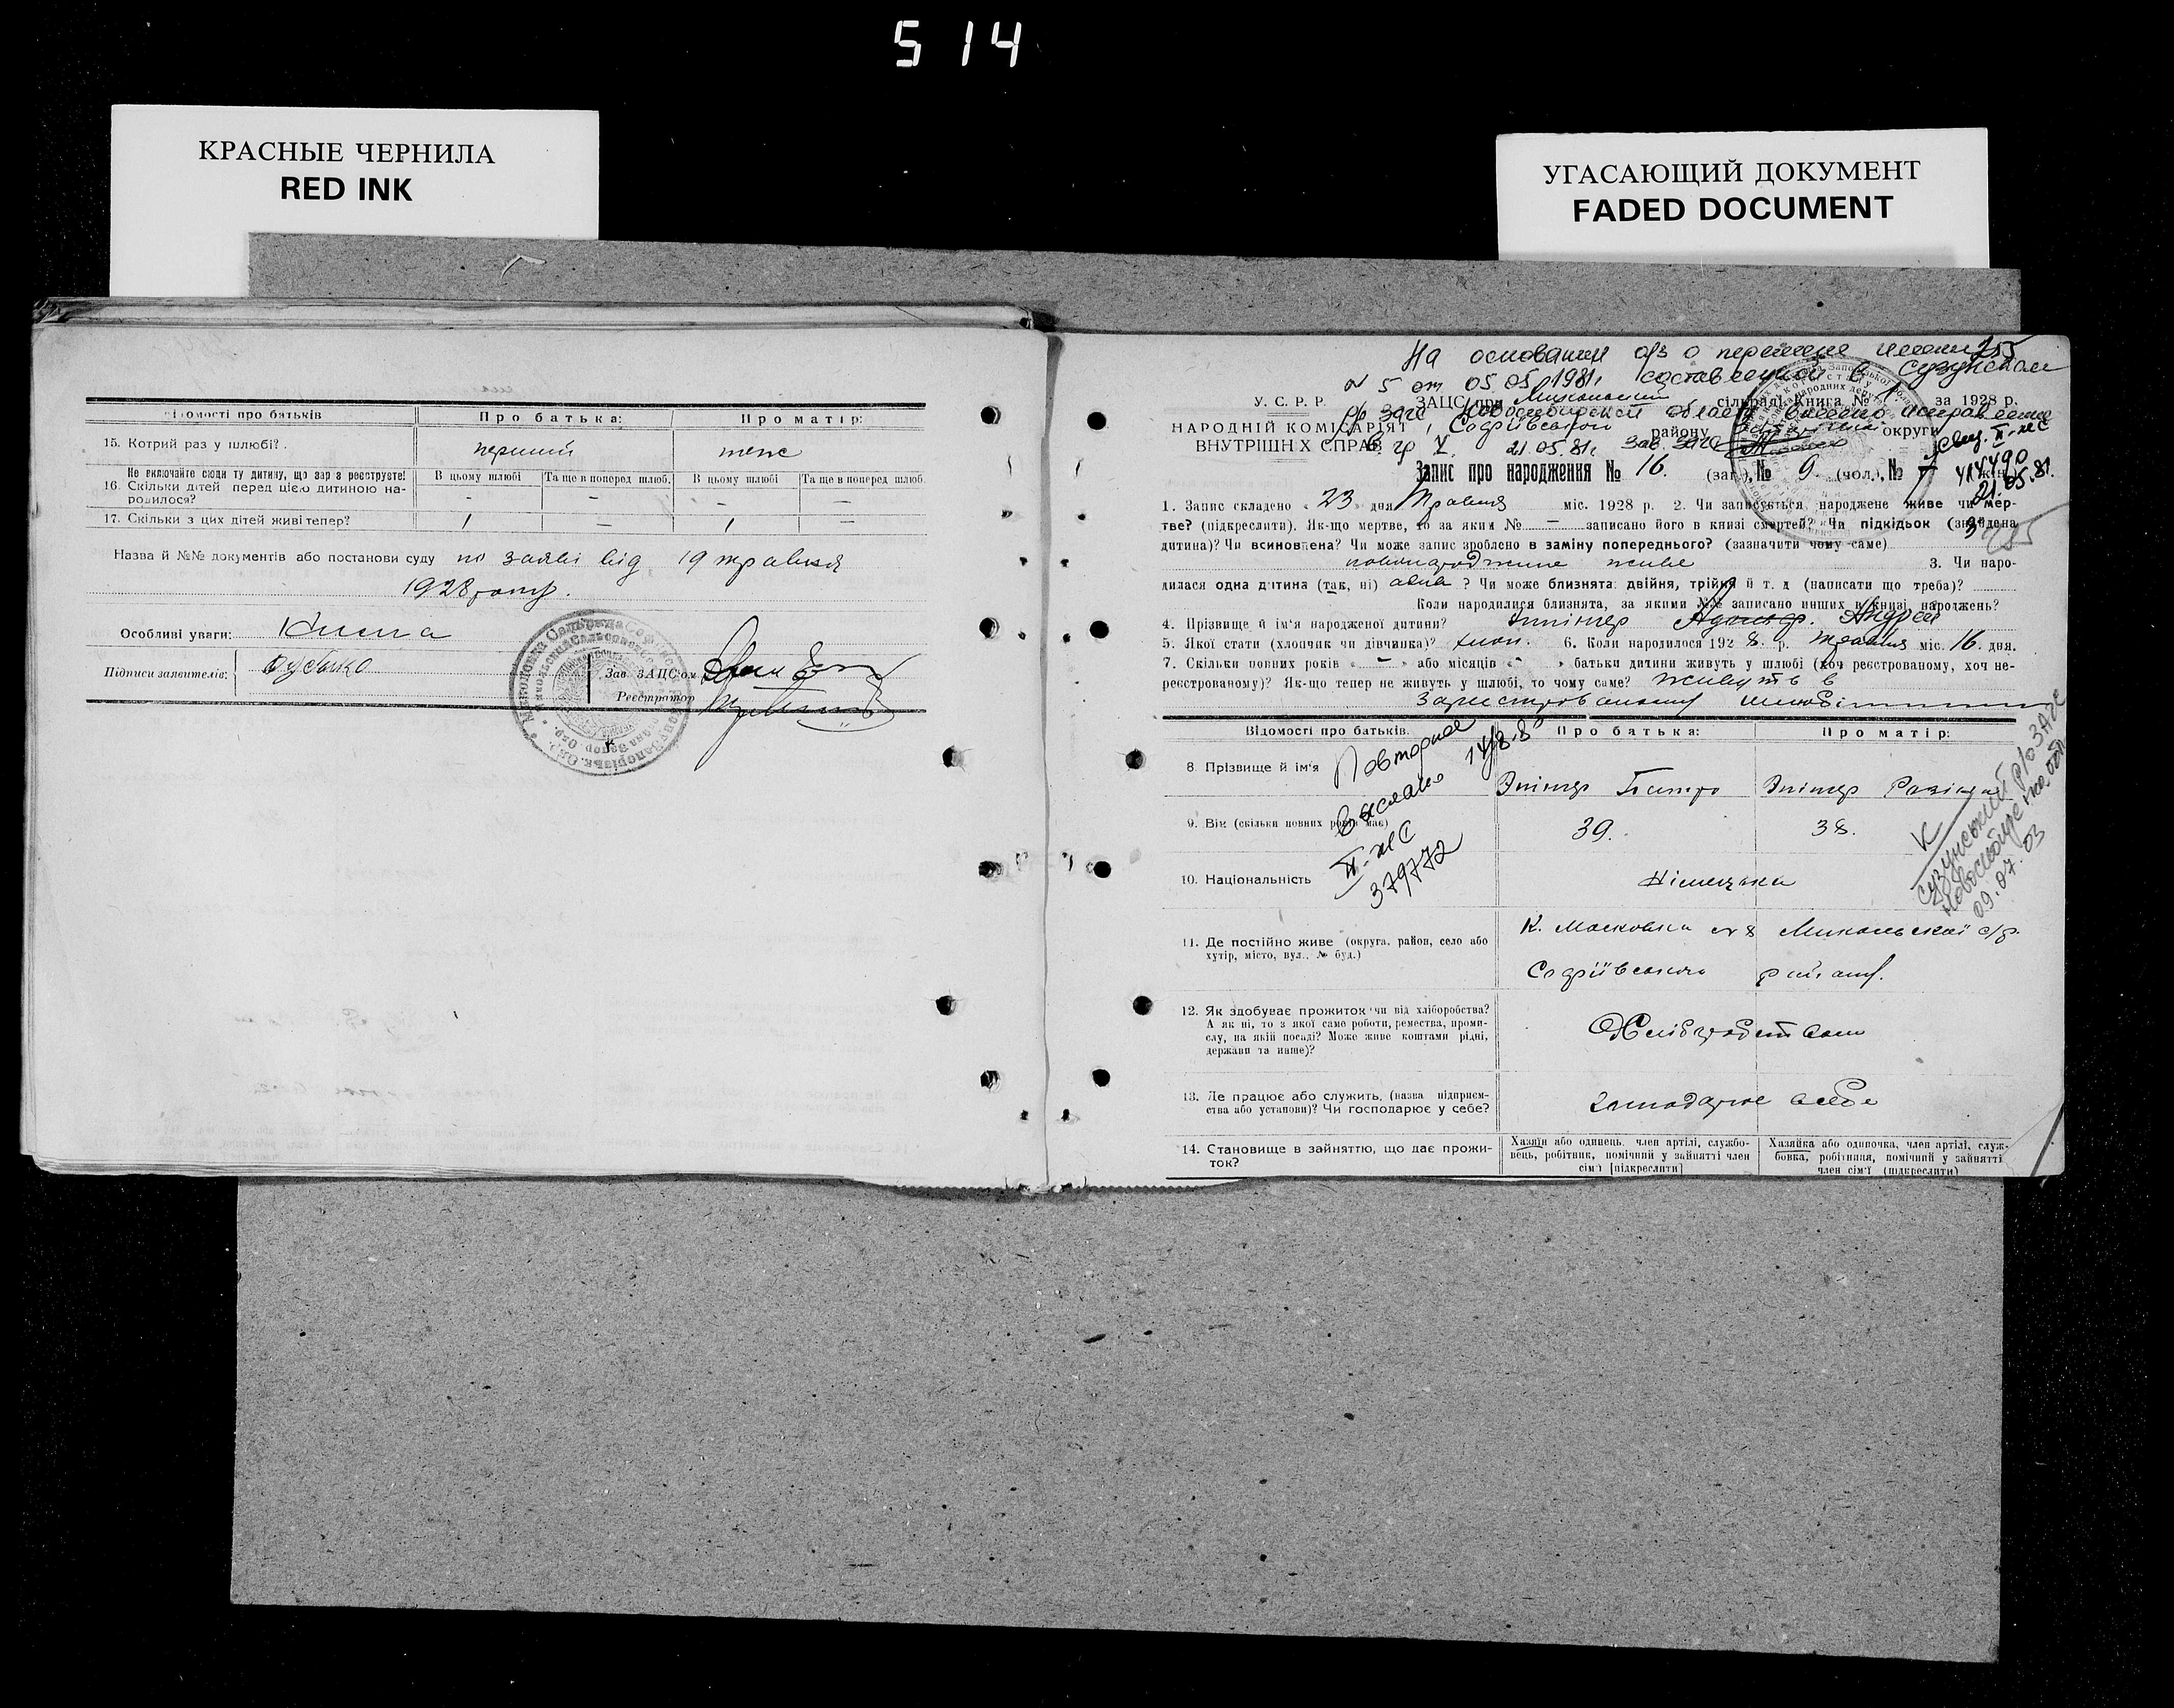 514
КРАСНЫЕ ЧЕРНИЛА
RED INK
УГАСАЮЩИЙ ДОКУМЕНТ
FADED DOCUMENT
Відомості про батьків
Про батька:
Про матір:
15. Котрий раз у шлюбі?
перший
теж
Не включайте сюди ту дитину, що зараз реєструєте!
16. Скільки дітей перед цією дитиною народилося?
В цьому шлюбі
Та ще в поперед шлюб.
В цьому шлюбі
Та ще в поперед шлюб.
- - - -
17. Скільки з цих дітей живі тепер?
1 — 1 —
Назва й №№ документів або постанови суду по заяві від 19 травня
1928 року.
Особливі уваги:
Підписи заявителів:
Зав. ЗАЦС'ом
Реєстратор
На основании а/з о перемене имени 255
№ 5 от 05 05 1981г. составленной в Сузунском
У.С.Р.Р. ЗАЦС при сільраді Книга № 1 за 1928 р.
р/о загс Новосибирской области внесено исправление
НАРОДНІЙ КОМІСАРІЯТ Софіївського району округи
ВНУТРІШНІХ СПРАВ
в гр V. 21.05.81г. зав. загс
свид. II-ЖС
414490
21.05.81.
Запис про народження № 16. (заг.), № 9. (чол.), № 7 (жін.)
1. Запис складено „23„ дня Травня міс. 1928 р. 2. Чи записується народжене живе чи мер-
тве? (підкреслити). Як-що мертве, то за яким № — записано його в книзі смертей? Чи підкідьок (знайдена
дитина)? Чи всиновлена? Чи може запис зроблено в заміну попереднього? (зазначити чому саме)
новонароджене живе 3. Чи наро-
дилася одна дитина (так, ні) одна ? Чи може близнята: двійня, трійня й т. д (написати що треба)?
Коли народилися близнята, за якими №№ записано инших в книзі народжень?
4. Прізвище й ім'я народженої дитини? Эппінгер Андрей
5. Якої стати (хлопчик чи дівчинка)? хлоп. 6. Коли народилося 1928. р. травня міс. 16. дня.
7. Скільки повних років „-„ або місяців „-„ батьки дитини живуть у шлюбі (хоч реєстрованому, хоч не-
реєстрованому)? Як-що тепер не живуть у шлюбі, то чому саме? живуть в
зареєстрованому шлюбі
Відомості про батьків.
Про батька:
Про матір:
Повторное
выслано 14/8.8
II-ЖС
379772
8. Прізвище й ім'я
Эпінгер Петро
Эпінгер
9. Вік (скільки повних років має)
39.
38.
10. Національність
Німецька
К
Сузунский р/о ЗАГС
Новосибирской обл
09.07.03
11. Де постійно живе (округа, район, село або
хутір, місто, вул., № буд.)
К. Московка № 8 Микольської с/р.
Софіївського району.
12. Як здобуває прожиток чи від хліборобства?
А як ні, то з якої саме роботи, ремества, проми-
слу, на якій посаді? Може живе коштами рідні,
держави та инше)?
Хліборобством
13. Де працює або служить, (назва підприєм-
ства або установи)? Чи господарює у себе?
Господарює в себе
14. Становище в зайняттю, що дає прожи-
ток?
Хазяїн або одинець, член артілі, службо-
вець, робітник, помічний у зайнятті член
сім'ї [підкреслити]
Хазяйка або одиночка, член артілі, служ-
бовка, робітниця, помічний у зайнятті
член сім'ї (підкреслити)